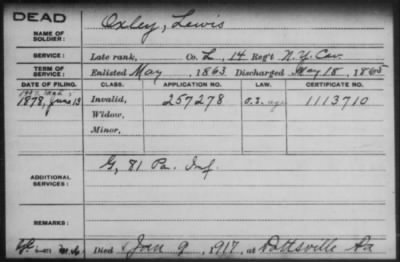 DEAD
NAME OF SOLDIER: Oxley, Lewis
SERVICE: Late rank, Co. L, 14 Reg't N.Y. Cav.
TERM OF SERVICE: Enlisted May , 1863 Discharged May 18, 1865
DATE OF FILING. CLASS. APPLICATION NO. LAW. CERTIFICATE NO.
1878, June 13 Invalid, 257278 1113710
Widow,
Minor,
ADDITIONAL SERVICES: G, 81 Pa. Inf.
REMARKS:
Died Jan 9, 1917, at Pottsville Pa